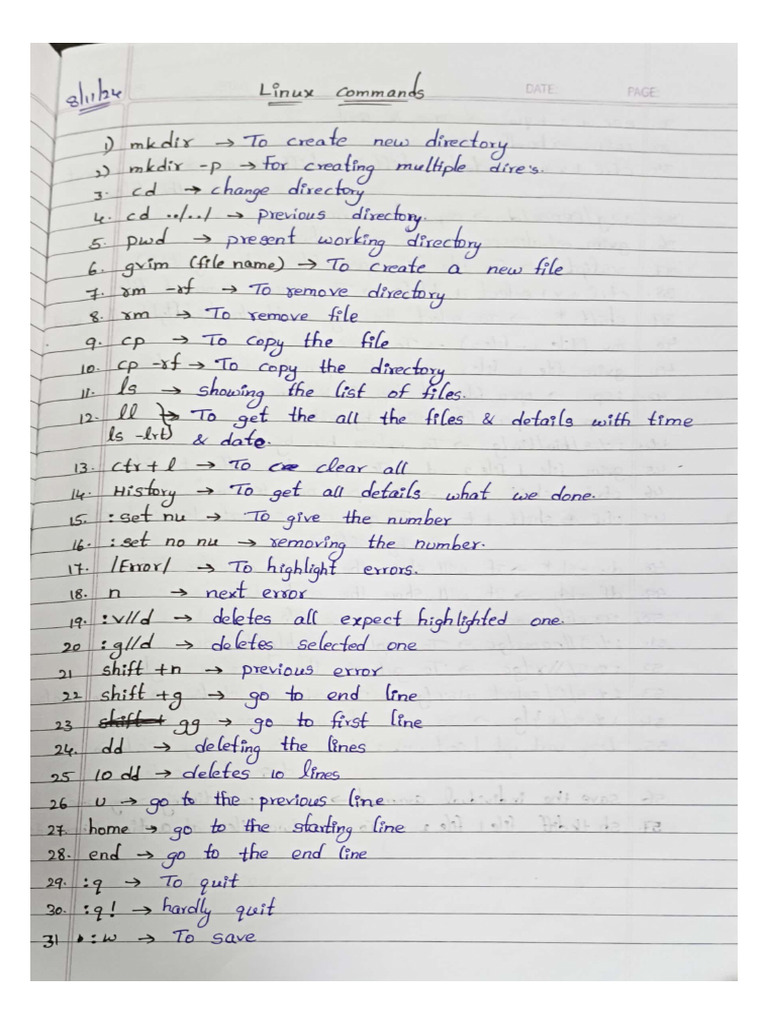 8/11/24 Linux commands DATE: PAGE:
1) mkdir → To create new directory
2) mkdir -p → For creating multiple dire's.
3. cd → change directory
4. cd ../../ → previous directory.
5. pwd → present working directory
6. gvim (file name) → To create a new file
7. rm -rf → To remove directory
8. rm → To remove file
9. cp → To copy the file
10. cp -rf → To copy the directory
11. ls → showing the list of files.
12. ll → To get the all the files & details with time
ls -lrt & date.
13. ctr + l → To clear all
14. History → To get all details what we done.
15. :set nu → To give the number
16. :set no nu → removing the number.
17. /Error/ → To highlight errors.
18. n → next error
19. :v//d → deletes all expect highlighted one.
20 :g//d → deletes selected one
21 shift +n → previous error
22 shift +g → go to end line
23 shift+ gg → go to first line
24. dd → deleting the lines
25 10 dd → deletes 10 lines
26 u → go to the previous line
27. home → go to the starting line
28. end → go to the end line
29. :q → To quit
30. :q! → hardly quit
31 :w → To save